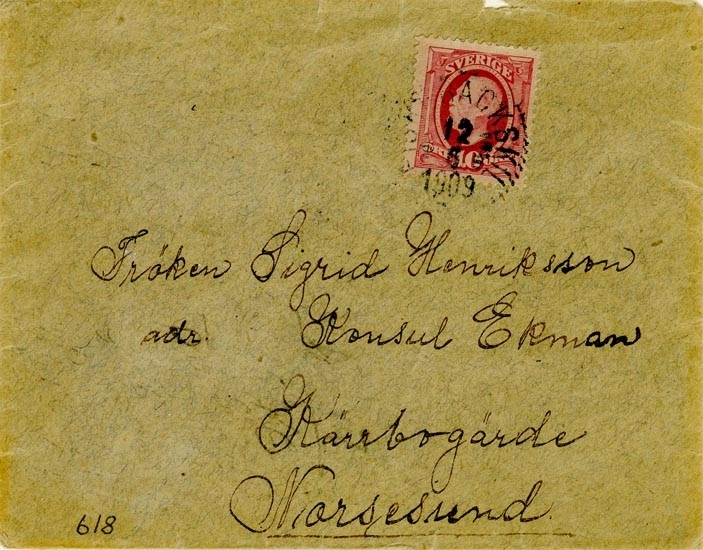 SVERIGE
12
1909
Fröken Sigrid Henriksson
adr. Konsul Ekman
Kärrbogärde
Norsesund
618